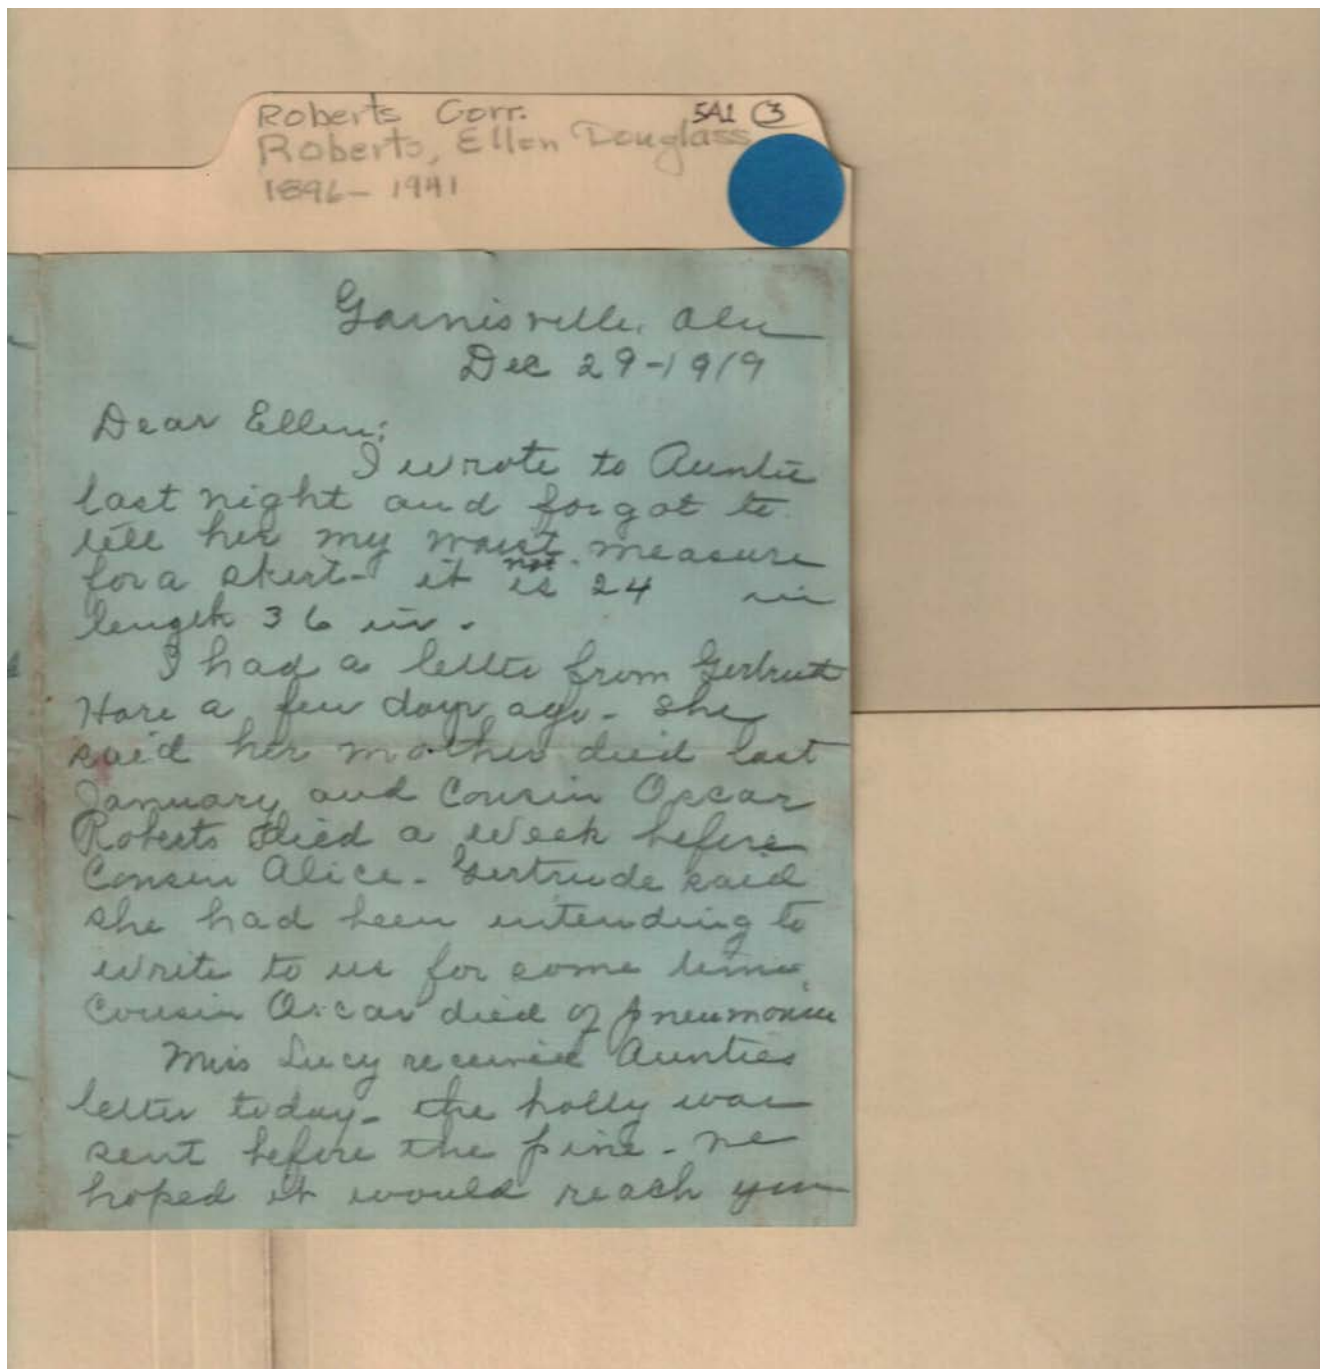 Roberts Corr. 5A1 (3)
Roberts, Ellen Douglass
1896-1941
Gainisville, Ala
Dec 29-1919
Dear Ellen;
I wrote to Auntie
last night and forgot to
tell her my waist measure
for a skirt- it is 24 in
length 36 in.
I had a letter from Gertrude
Hare a few days ago- she
said her mother died last
January and Cousin Oscar
Roberts died a week before
Cousin Alice- Gertrude said
she had been intending to
write to us for some time.
Cousin Oscar died of pneumonia
Miss Lucy received Aunties
letter today- the holly was
sent before the pine- we
hoped it would reach you